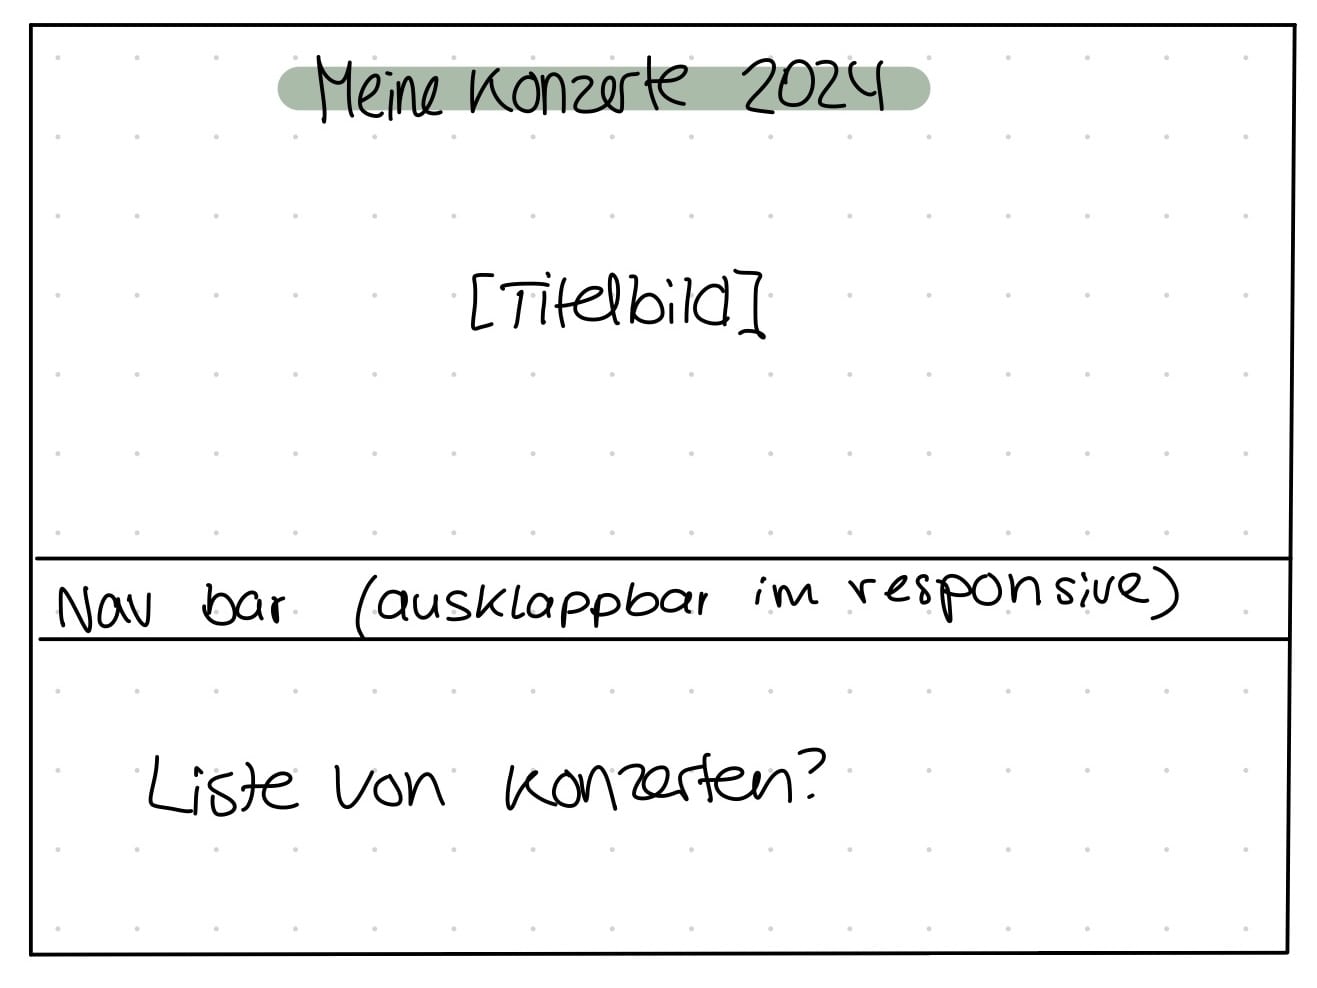 Meine Konzerte 2024
[Titelbild]
Nav bar (ausklappbar im responsive)
Liste von Konzerten?